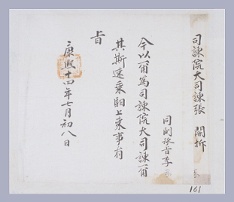 司諫院大司諫張 開坼
同副承旨李
今以爾爲司諫院大司諫爾
其斯速乘馹上來事有
旨
康熙十四年七月初八日
161